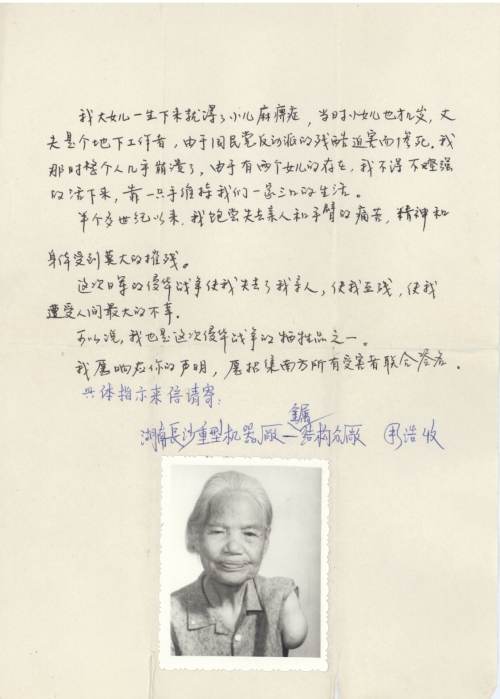 我大女儿一生下来就得了小儿麻痹症，当时小女儿也才几岁，丈
夫是个地下工作者，由于国民党反动派的残酷迫害而惨死。我
那时整个人几乎崩溃了，由于有两个女儿的存在，我不得不坚强
的活下来，靠一只手维持我们一家三口的生活。
半个多世纪以来，我饱尝失去亲人和手臂的痛苦，精神和
身体受到莫大的摧残。
这次日军的侵华战争使我失去了我亲人，使我至残，使我
遭受人间最大的不幸。
可以说，我也是这次侵华战争的牺牲品之一。
我愿响应你的声明，愿招集南方所有受害者联合签名。
具体指示来信请寄：
金属
湖南長沙重型机器廠—结构分廠 浩收